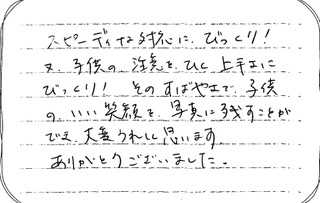 スピーディな対応に、びっくり!
又、子供の注意をひく上手さに
びっくり! そのすばやさで、子供
の、いい笑顔を写真に残すことが
でき、大変うれしく思います
ありがとうございました。